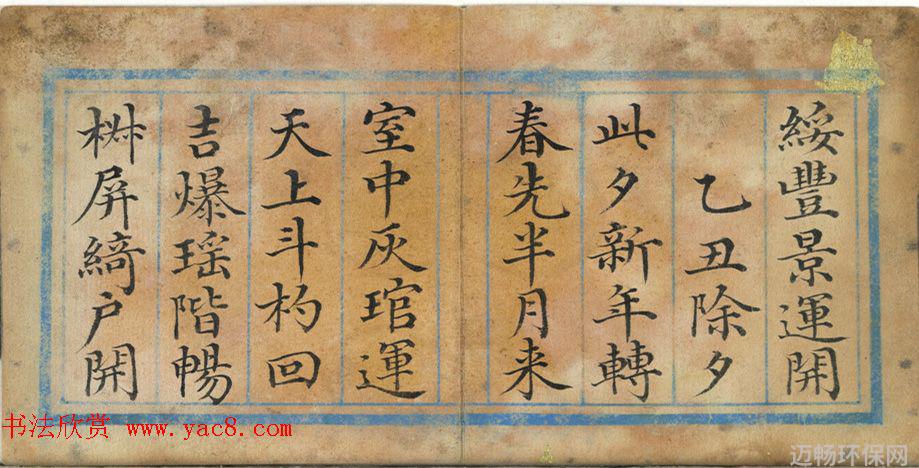 綏豐景運開
乙丑除夕
此夕新年轉
春先半月来
室中灰琯運
天上斗杓回
吉爆瑶階暢
椒屏綺户開
书法欣赏 www.yac8.com
迈畅环保网